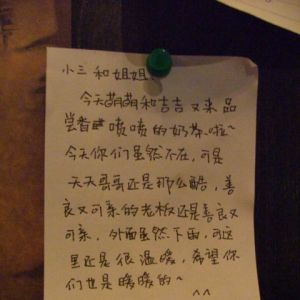 小三和姐姐:
今天萌萌和吉吉又来品
尝香喷喷的奶茶啦~
今天你们虽然不在,可是
天天哥哥还是那么酷,善
良又可亲的老板还是善良又
可亲。外面虽然下雨,可这
里还是很温暖,希望你
们也是暖暖的~
^^